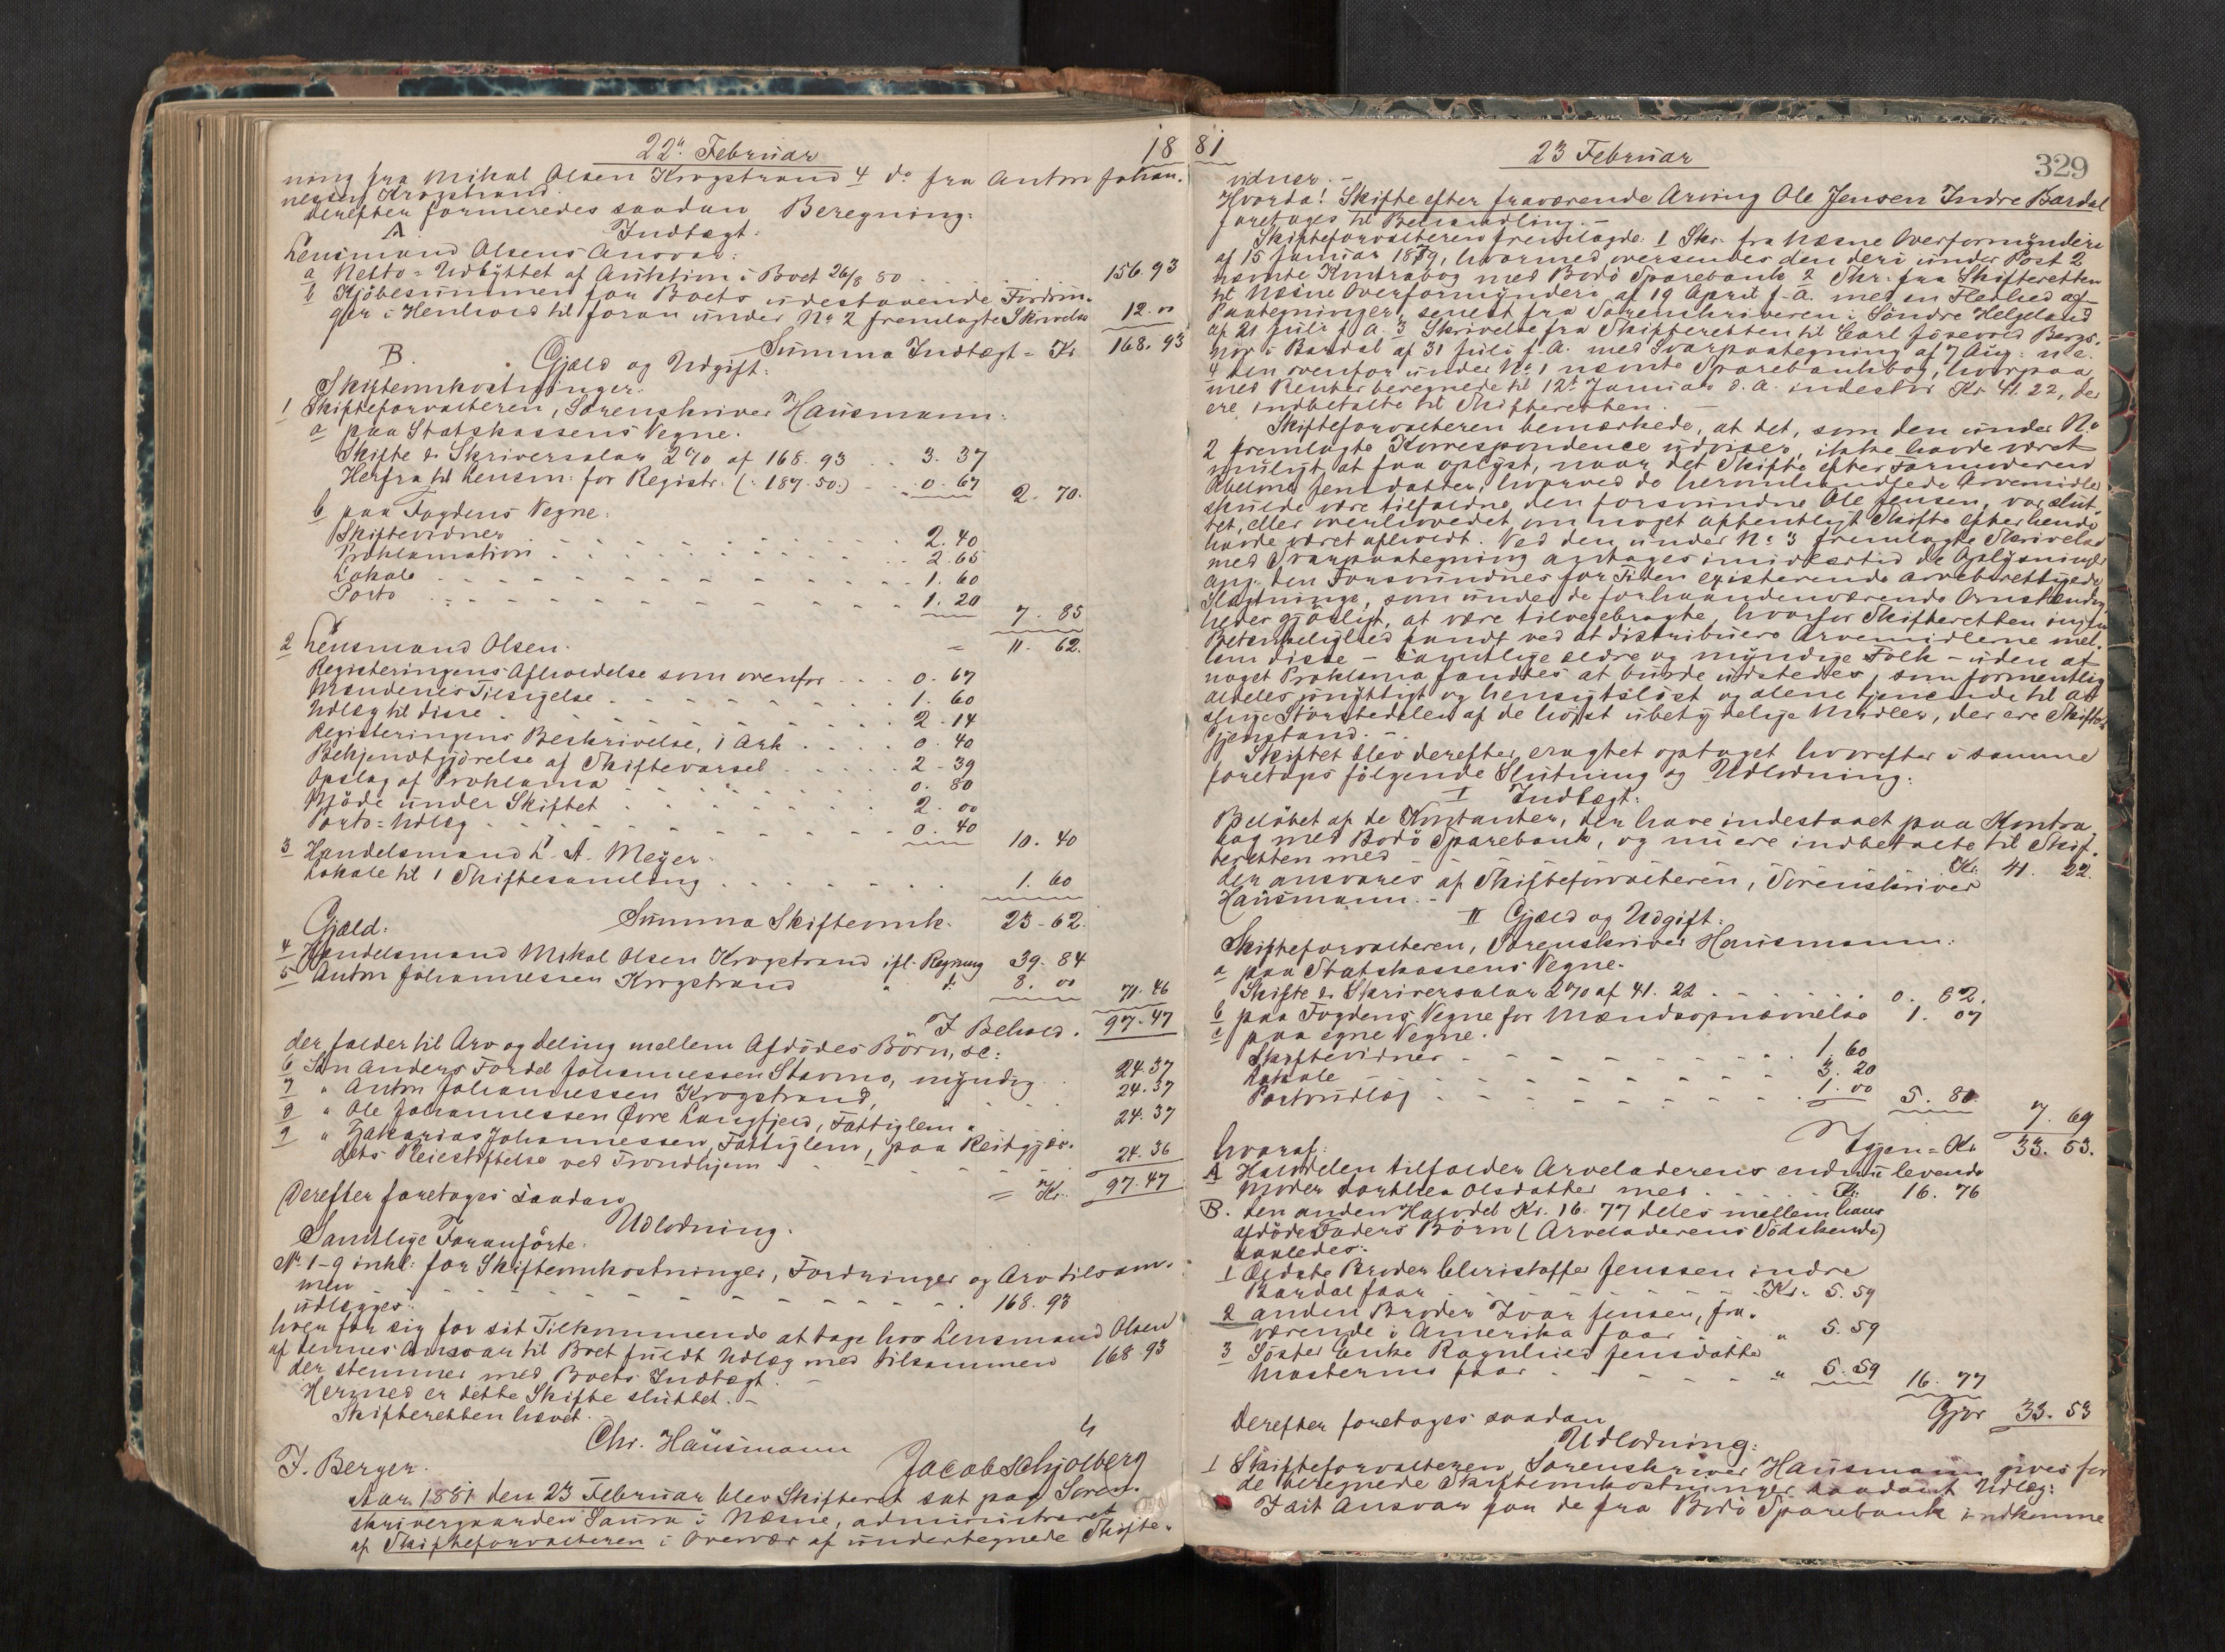 22de Februar
18
ning fra Mikal Olsen Krogstrand 4 do fra Anton Johan-
nessen Krogstrand.
Derefter formeredes saadan Beregning:
A Indtægt:
Lensmand Olsens Ansvar:
a Netto-Udbyttet af Auktion i Boet 26/8 80 . . . 156.93
b Kjöbesummen for Boets udestaaende Fordrin-
ger i Henhold til foran under No 2 fremlagte Skrivelse 12.00
Summa Indtægt = Kr 168.93
B. Gjæld og Udgift:
Skifteomkostninger.
1 Skifteforvalteren, Sorenskriver Hausmann:
a paa Statskassens Vegne.
Skifte & Skriversalær 2% af 168.93 . . 3.37
Herfra til Lensm: for Registr. (: 187.50:) . . 0.67 2.70.
b paa Fogdens Vegne:
Skiftevidner . . . 2.40
Proklamation . . . 2.65
Lokale . . . 1.60
Porto . . . 1.20 7.85
= 11.62.
2 Lensmand Olsen.
Registeringens Afholdelse som ovenfor . . . 0.67
Mændenes Tilsigelse . . . 1.60
Udlæg til disse . . . 2.14
Registeringens Beskrivelse, 1 Ark . . . 0.40
Bekjendtgjörelse af Skiftevarsel . . . 2.39
Opslag af Proklama . . . 0.80
Möde under Skiftet . . . 2.00
Porto-Udlæg . . . 0.40 10.40
3 Handelsmand L. A. Meyer.
Lokale til 1 Skiftesamling . . . 1.60
Summa Skifteomk. 23.62.
Gjæld:
4 Handelsmand Mikal Olsen Krogstrand ifl. Regning 39.84
5 Anton Johannessen Krogstrand " do 8.00 71.46
I Behold. 97.47
der falder til Arv og Deling mellem Afdödes Börn, sc:
6 Sön Anders Fordel Johannessen Stavnes, myndig . . 24.37
7 " Anton Johannessen Krogstrand, " . . . 24.37
8 " Ole Johannessen Övre Langfjeld, Fattiglem " . . 24.37
9 " Zakarias Johannessen, Fattiglem, paa Reitgjær-
dets Pleiestiftelse ved Trondhjem . . . 24.36
= Kr. 97.47
Derefter foretages saadan
Udlodning.
Samtlige Foranförte.
No 1-9 inkl: for Skifteomkostninger, Fordringer og Arv tilsam-
men . . . 168.93
udlægges:
hver for sig for sit Tilkommende at tage hos Lensmand Olsen
af dennes Ansvar til Boet fuldt Udlæg med tilsammen 168.93
der stemmer med Boets Indtægt. -
Hermed er dette Skifte sluttet. -
Skifteretten hævet.
Chr. Hausmann
F. Berger.
Jacob Schjölberg
Aar 1881 den 23 Februar blev Skifteret sat paa Soren-
skrivergaarden Saura i Næsne, administreret
af Skifteforvalteren i Overvær af undertegnede Skifte-
81
23 Februar
329
vidner. -
Hvorda! Skifte efter fraværende Arving Ole Jensen Indre Bardal
foretages til Behandling. -
Skifteforvalteren fremlagde: 1 Skr. fra Næsne Overformynderi
af 15 Januar 1879, hvormed oversendes den deri under Post 2
nævnte Kontrabog med Bodö Sparebank 2 Skr. fra Skifteretten
til Næsne Overformynderi af 19 April f. A. med en Flerhed af
Paategninger, senest fra Sorenskriveren i Söndre Helgeland
af 21 Juli f. A. 3 Skrivelse fra Skifteretten til Carl Bergs-
nör i Bardal af 31 Juli f. A. med Svarpaategning af 7 Aug: n. e.
4 den ovenfor under No 1 nævnte Sparebankbog, hvorpaa
med Renter beregnede til 12te Januar d. A. indestod Kr 41.22, der
ere indbetalte til Skifteretten. -
Skifteforvalteren bemærkede, at det, som den under No
2 fremlagte Korrespondence udviser, ikke havde været
muligt at faa oplyst, naar det Skifte efter Farmoderen
Abelone Jensdatter, hvorved de heromhandlede Arvemidler
skulde være tilfaldne den forsvundne Ole Jensen, var slut-
tet, eller overhovedet om noget offentligt Skifte efter hende
havde været afholdt. Ved den under No 3 fremlagte Skrivelse
med Svarpaategning antages imidlertid de Oplysninger
ang. den Forsvundnes for Tiden existerende arveberettigede
Slægtninge, som under de forhaandenværende Omstændig-
heder gjörligt, at være tilveiebragte, hvorfor Skifteretten ingen
Betænkelighed fandt ved at distribuere Arvemidlerne mel-
lem disse - samtlige ældre og myndige Folk - uden at
noget Proklama fandtes at burde udstedes, som formentlig
aldeles unyttigt og hensigtslöst og alene tjenende til at
sluge Störstedelen af de höist ubetydelige Midler, der ere Skiftets
Gjenstand. -
Skiftet blev derefter eragtet optaget hvorefter i samme
foretages fölgende Slutning og Udlodning:
I Indtægt:
Belöbet af de Kontanter, der have indestaaet paa Kontra-
bog med Bodö Sparebank, og nu ere indbetalte til Skif-
teretten med . . . Kr. 41.22.
der ansvares af Skifteforvalteren, Sorenskriver
Hausmann. -
II Gjæld og Udgift:
Skifteforvalteren, Sorenskriver Hausmann:
a paa Statskassens Vegne.
Skifte & Skriversalær 2% af 41.22 . . . 0.82.
b paa Fogdens Vegne for Mændsopnævnelse 1.07
c paa egne Vegne.
Skiftevidner . . . 1.60
Lokale . . . 3.20
Portoudlæg . . . 1.00 5.80 7.69
Igjen = Kr 33.53.
hvoraf:
A Halvdelen tilfalder Arveladerens endnu levende
Moder Dorthea Olsdatter med . . . Kr. 16.76
B. den anden Halvdel Kr. 16.77 deles mellem hans
afdöde Faders Börn (Arveladerens Södskende)
saaledes:
1 Ældste Broder Christoffer Jenssen indre
Bardal faar . . . Kr. 5.59
2 anden Broder Ivar Jensen, fra-
værende i Amerika faar . . . " 5.59
3 Söster Enke Ragnhild Jensdatter
faar . . . " 5.59 16.77
Gjör 33.53
Derefter foretages saadan
Udlodning:
1 Skifteforvalteren, Sorenskriver Hausmann gives for
de beregnede Skifteomkostninger saadant Udlæg:
I sit Ansvar for de fra Bodö Sparebank indkomne